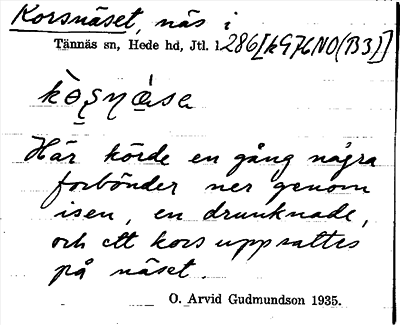 Korsnäset, näs i
Tännäs sn, Hede hd, Jtl. l. 286 [kG76NO(B3)]
Här körde en gång några
forbönder ner genom
isen, en drunknade,
och ett kors uppsattes
på näset.
O. Arvid Gudmundson 1935.